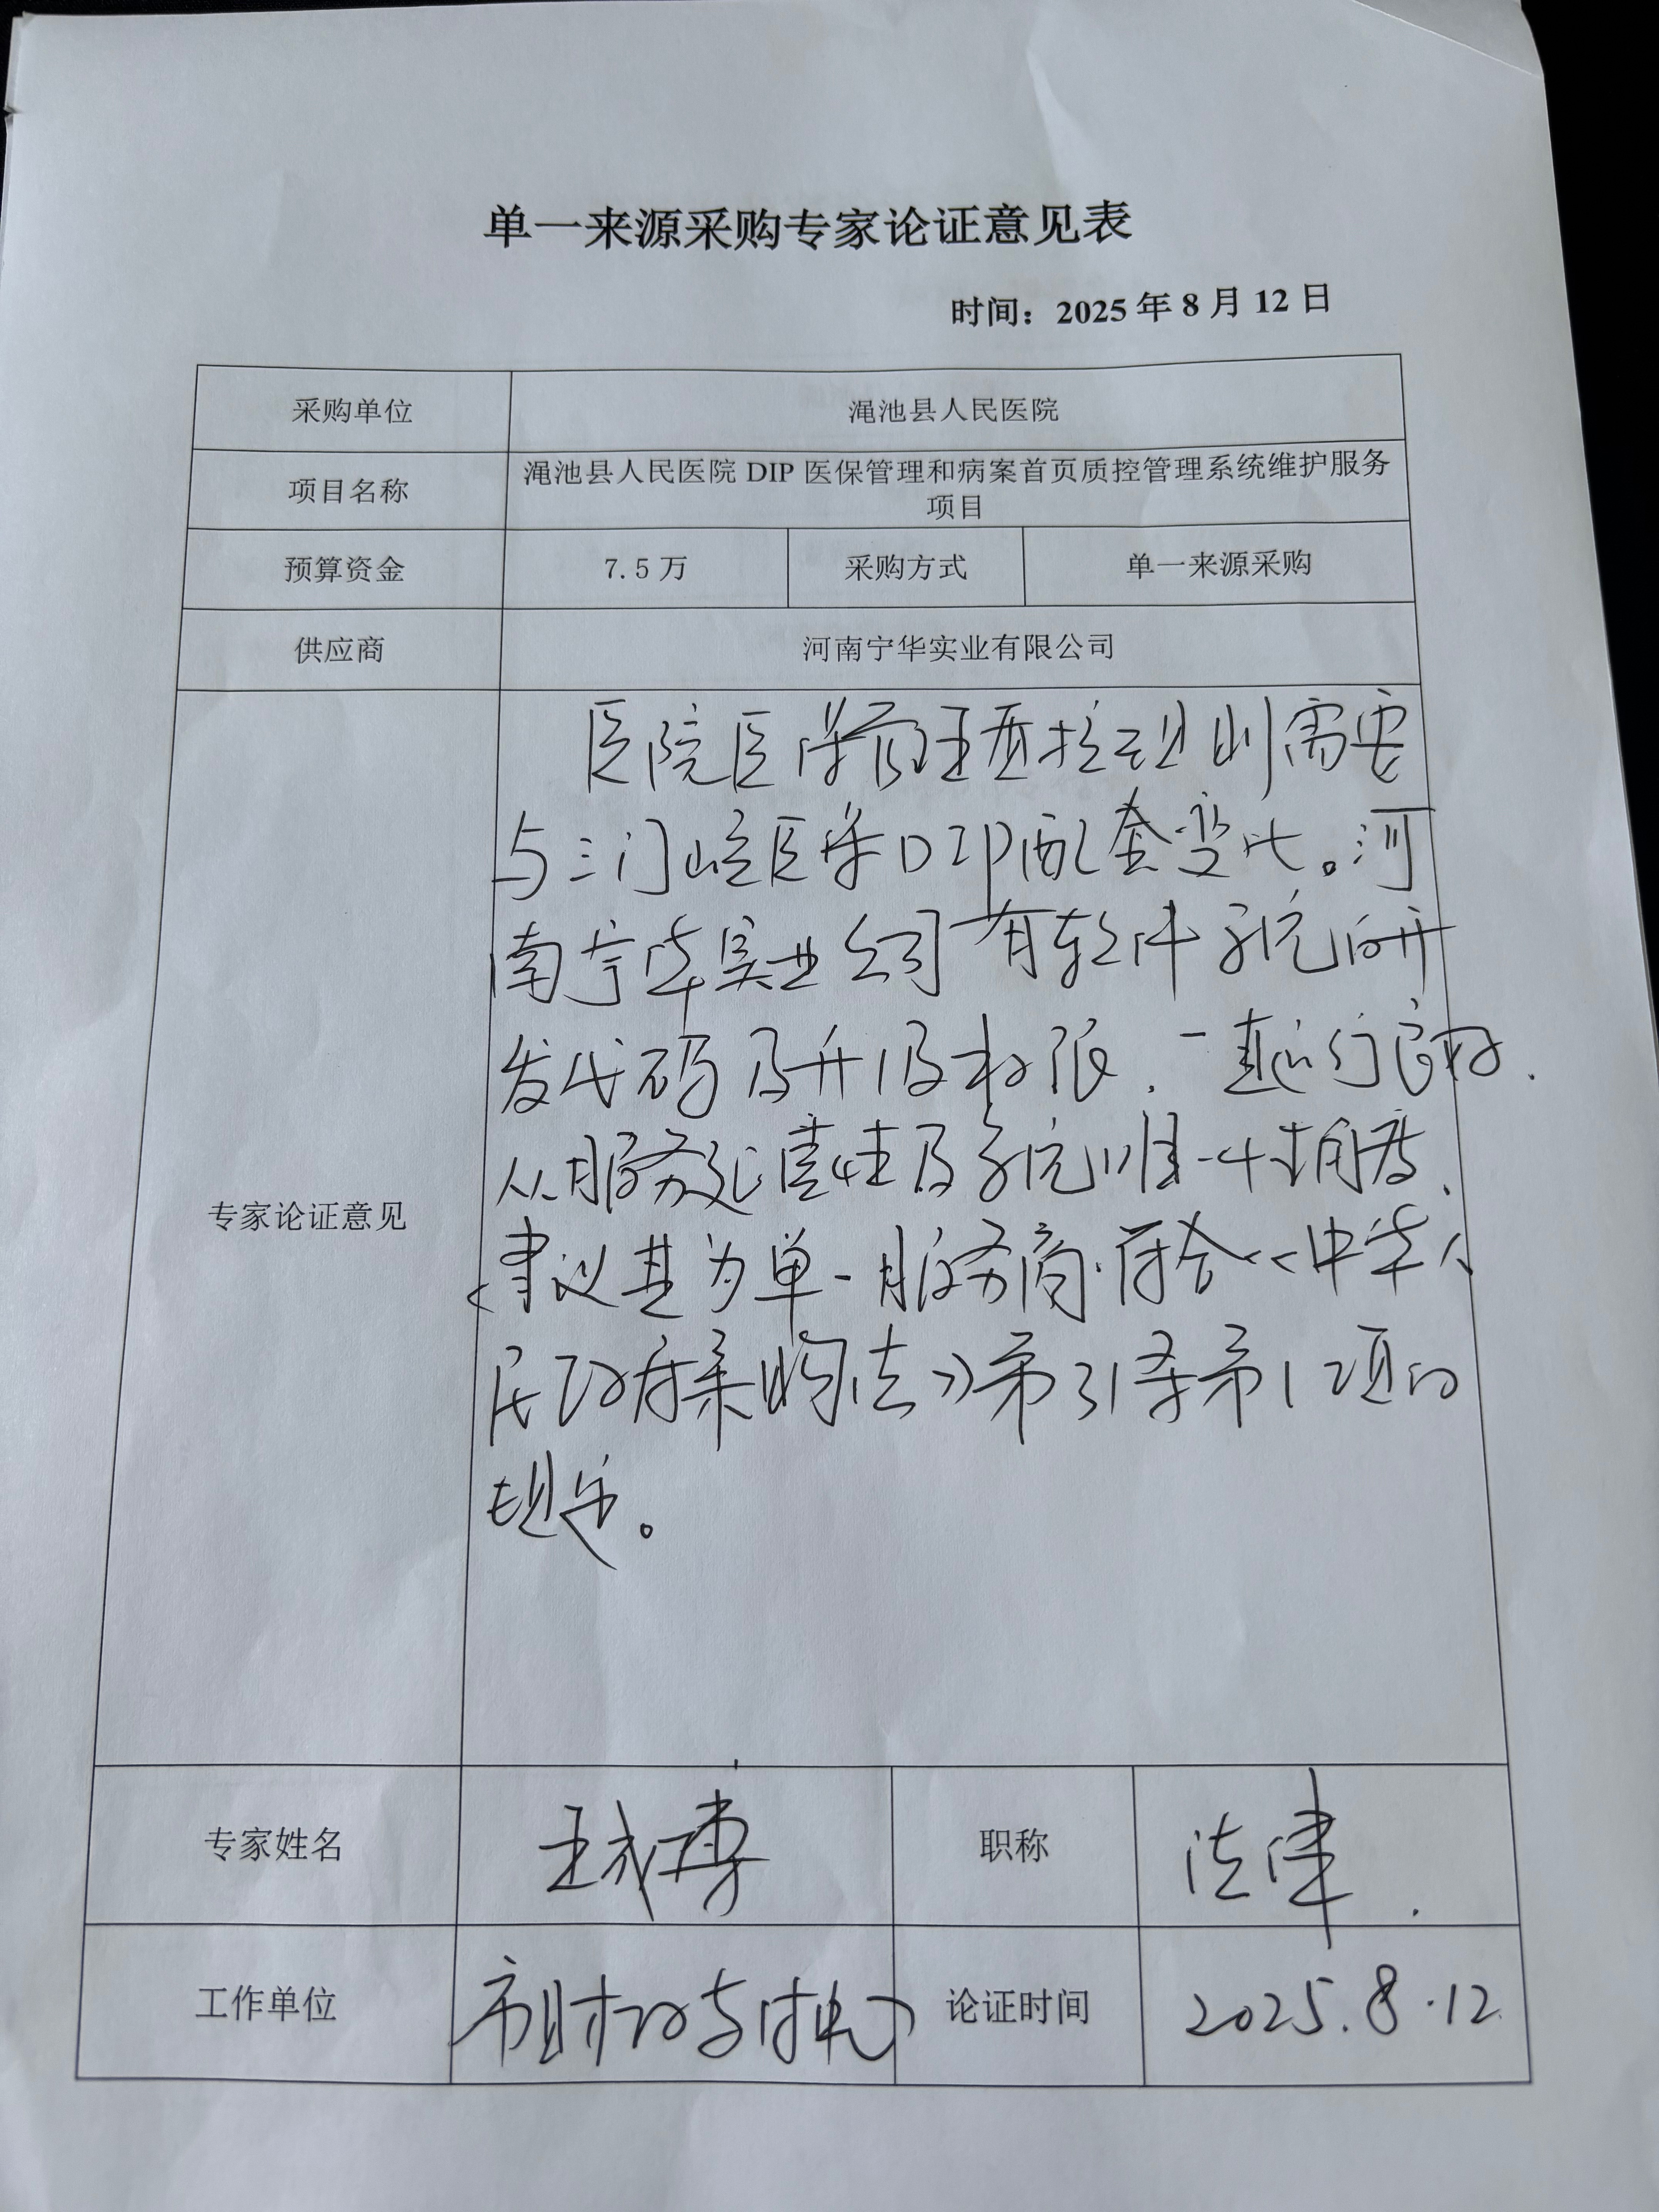 单一来源采购专家论证意见表
时间：2025年8月12日
采购单位 渑池县人民医院
项目名称 渑池县人民医院DIP医保管理和病案首页质控管理系统维护服务
项目
预算资金 7.5万 采购方式 单一来源采购
供应商 河南宁华实业有限公司
专家论证意见
医院医保管理质控规则需要
与三门峡医保DIP配套变化。河
南宁华实业公司有软件系统的开
发代码及升级权限，一直运行良好.
从服务延续性及系统唯一性角度，
建议其为单一服务商.符合《中华人
民政府采购法》第31条第1项的
规定。
专家姓名 王 职称 法律.
工作单位 市财政 论证时间 2025.8.12